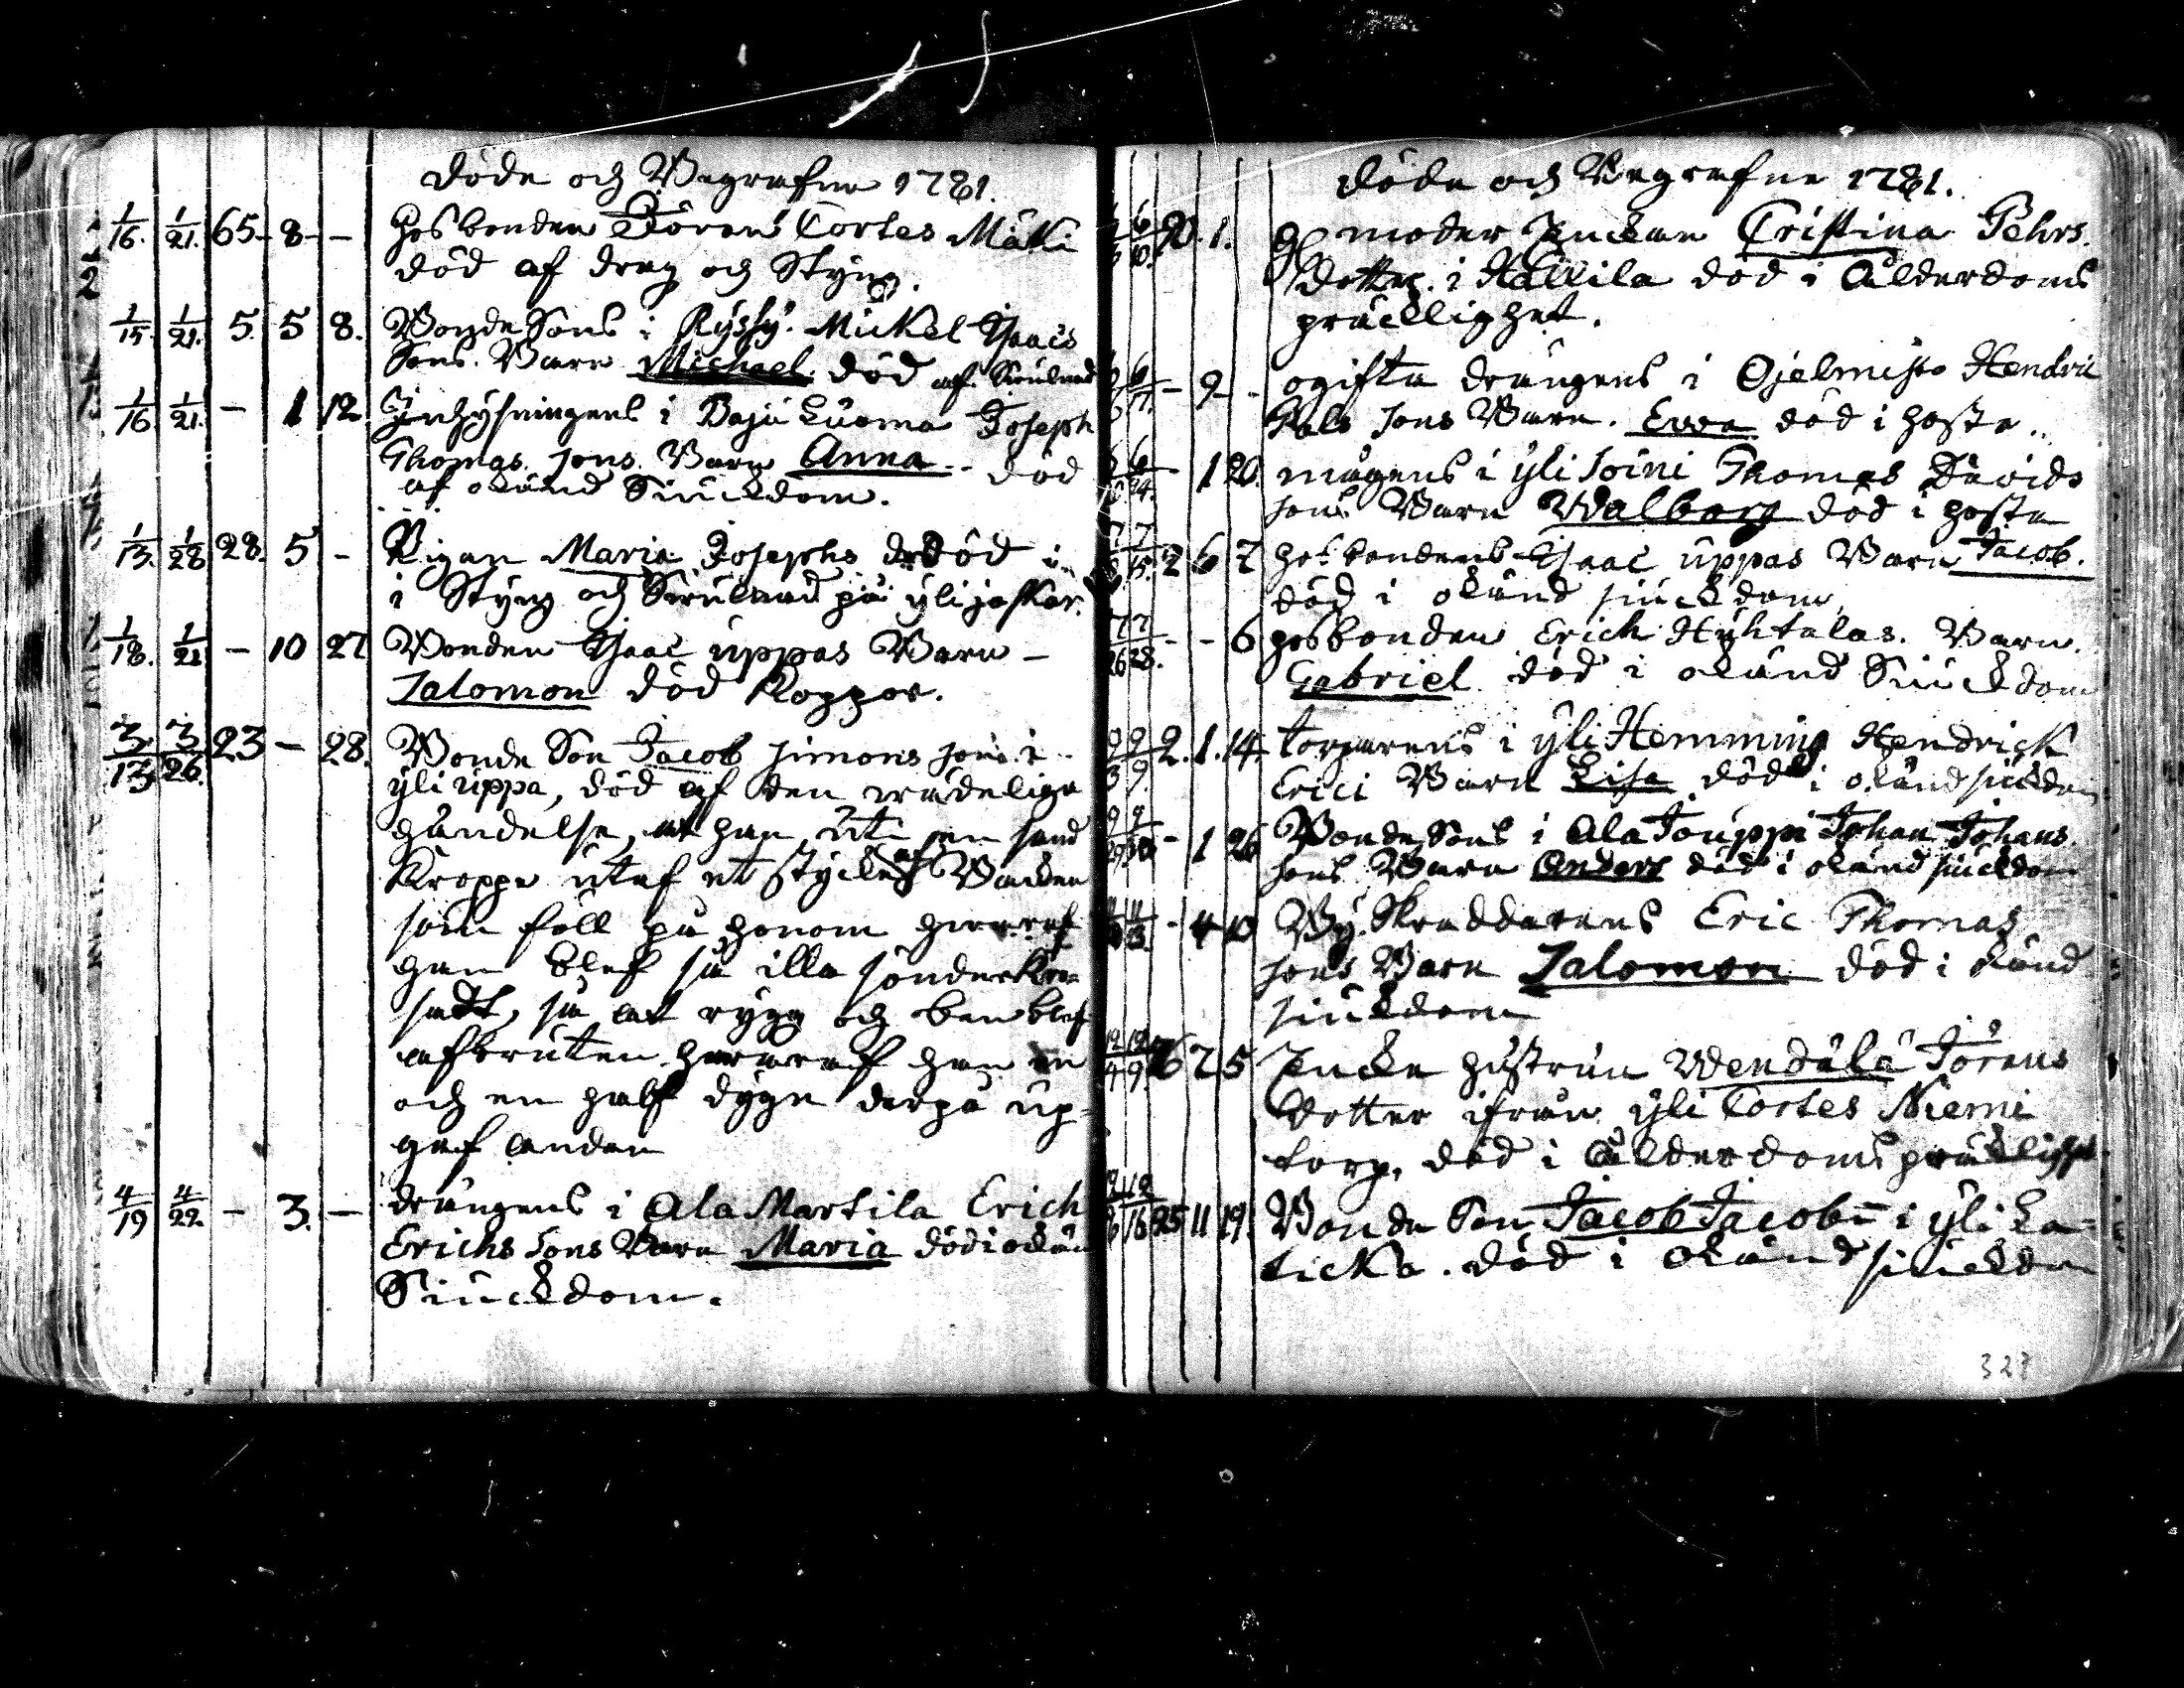 Döde och Begrafne 1781.
1/16. 1/21. 65- 8- - Hosbonden Jöran Cortes Mäki
död af drag och Styng.
1/15. 1/21. 5. 5 8. Bonde Sons i Ryssy. Mickel Isaacs
Sons. Barn Michael. död af Swulnad
1/16. 1/21. - 1 12. Inhysningens i Baju Luoma Joseph
Thomas. Sons. Barn Anna - död
af okänd Siuckdom.
1/13. 1/28 28. 5 - Pigan Maria Josephs dr död i
i Styng och Swulnad på yli
1/18. 1/21 - 10 27 Bonden Isaac uppas Barn -
Salomon död Koppor.
3/13 3/26. 23 - 28. Bonde Son Jacob Simons son i
yli uppa, död af den
händelse, at han uti en
Kroppe utaf et stycke af Backen
som föll på honom hwaraf
han blef så illa sönderkro=
sadt, så at rygg och ben blef
afbruten hwaraf han en
och en half dygn derpå up=
gaf andan
4/19 4/22. - 3. - drängens i Ala Martila Erich
Erichs Sons Barn Maria död i okän
Siuckdom.
Döde och Begrafne 1781.
90. 1. moder Enckan Cristina Pehrs.
dotter. i Kallila död i Ålderdoms
präcklighet.
6/17. - 9 - ogifta drängens i Ojelmisto Hendric
Sons Barn. Evva död i hosta.
6/24. - 1 20. mågens i yli Soini Thomas Davids
sons Barn Walborg död i hosta
7/15. 2 6 7 hosbondens Isaac uppas Barn Jacob.
död i okänd siuckdom.
7/26 7/28. - - 6 hosbonden Erich Hyhtalas. Barn.
Gabriel död i okänd Siuckdom
9/3 9/9. 2. 1. 14. torparens i yli Hemming Hendrick
Erici Barn Lisa död i okänd siuckdom
9/29 9/30 - 1 26 Bonde Sons i Ala Jouppi Johan Johans.
sons Barn Anders död i okänd siuckdom
11/3. - 4 10 By. Skraddarens Eric Thomas
sons Barn Salomon död i okänd
siuckdom
12/4 12/9. 76 7 5 Encke hustrun Wendäla Jörans
dotter ifrån yli Cortes Niemi
torp. död i Ålderdoms präcklighet.
12/16 25 11 19. Bonde Son Jacob Jacobs i yli La=
ticka. död i okänd siuckdom
323